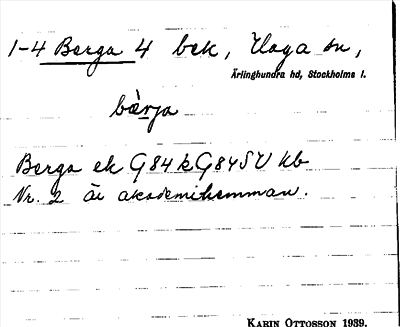 1-4 Berga 4 bek, Haga sn,
Ärlinghundra hd, Stockholms l.
bærja
Berga ek G84k G84SV kb
Nr. 2 är akademihemman.
KARIN OTTOSSON 1939.